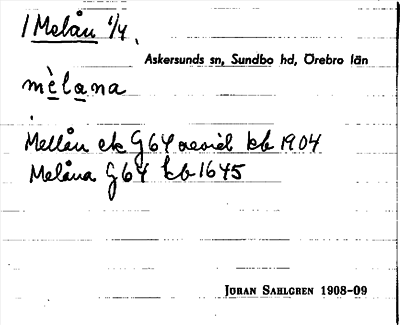 1 Melån 1/4
Askersunds sn, Sundbo hd, Örebro län
mèlana
Mellån ek G64 kb 1904
Melåna G64 kb 1645
JÖRAN SAHLGREN 1908-09